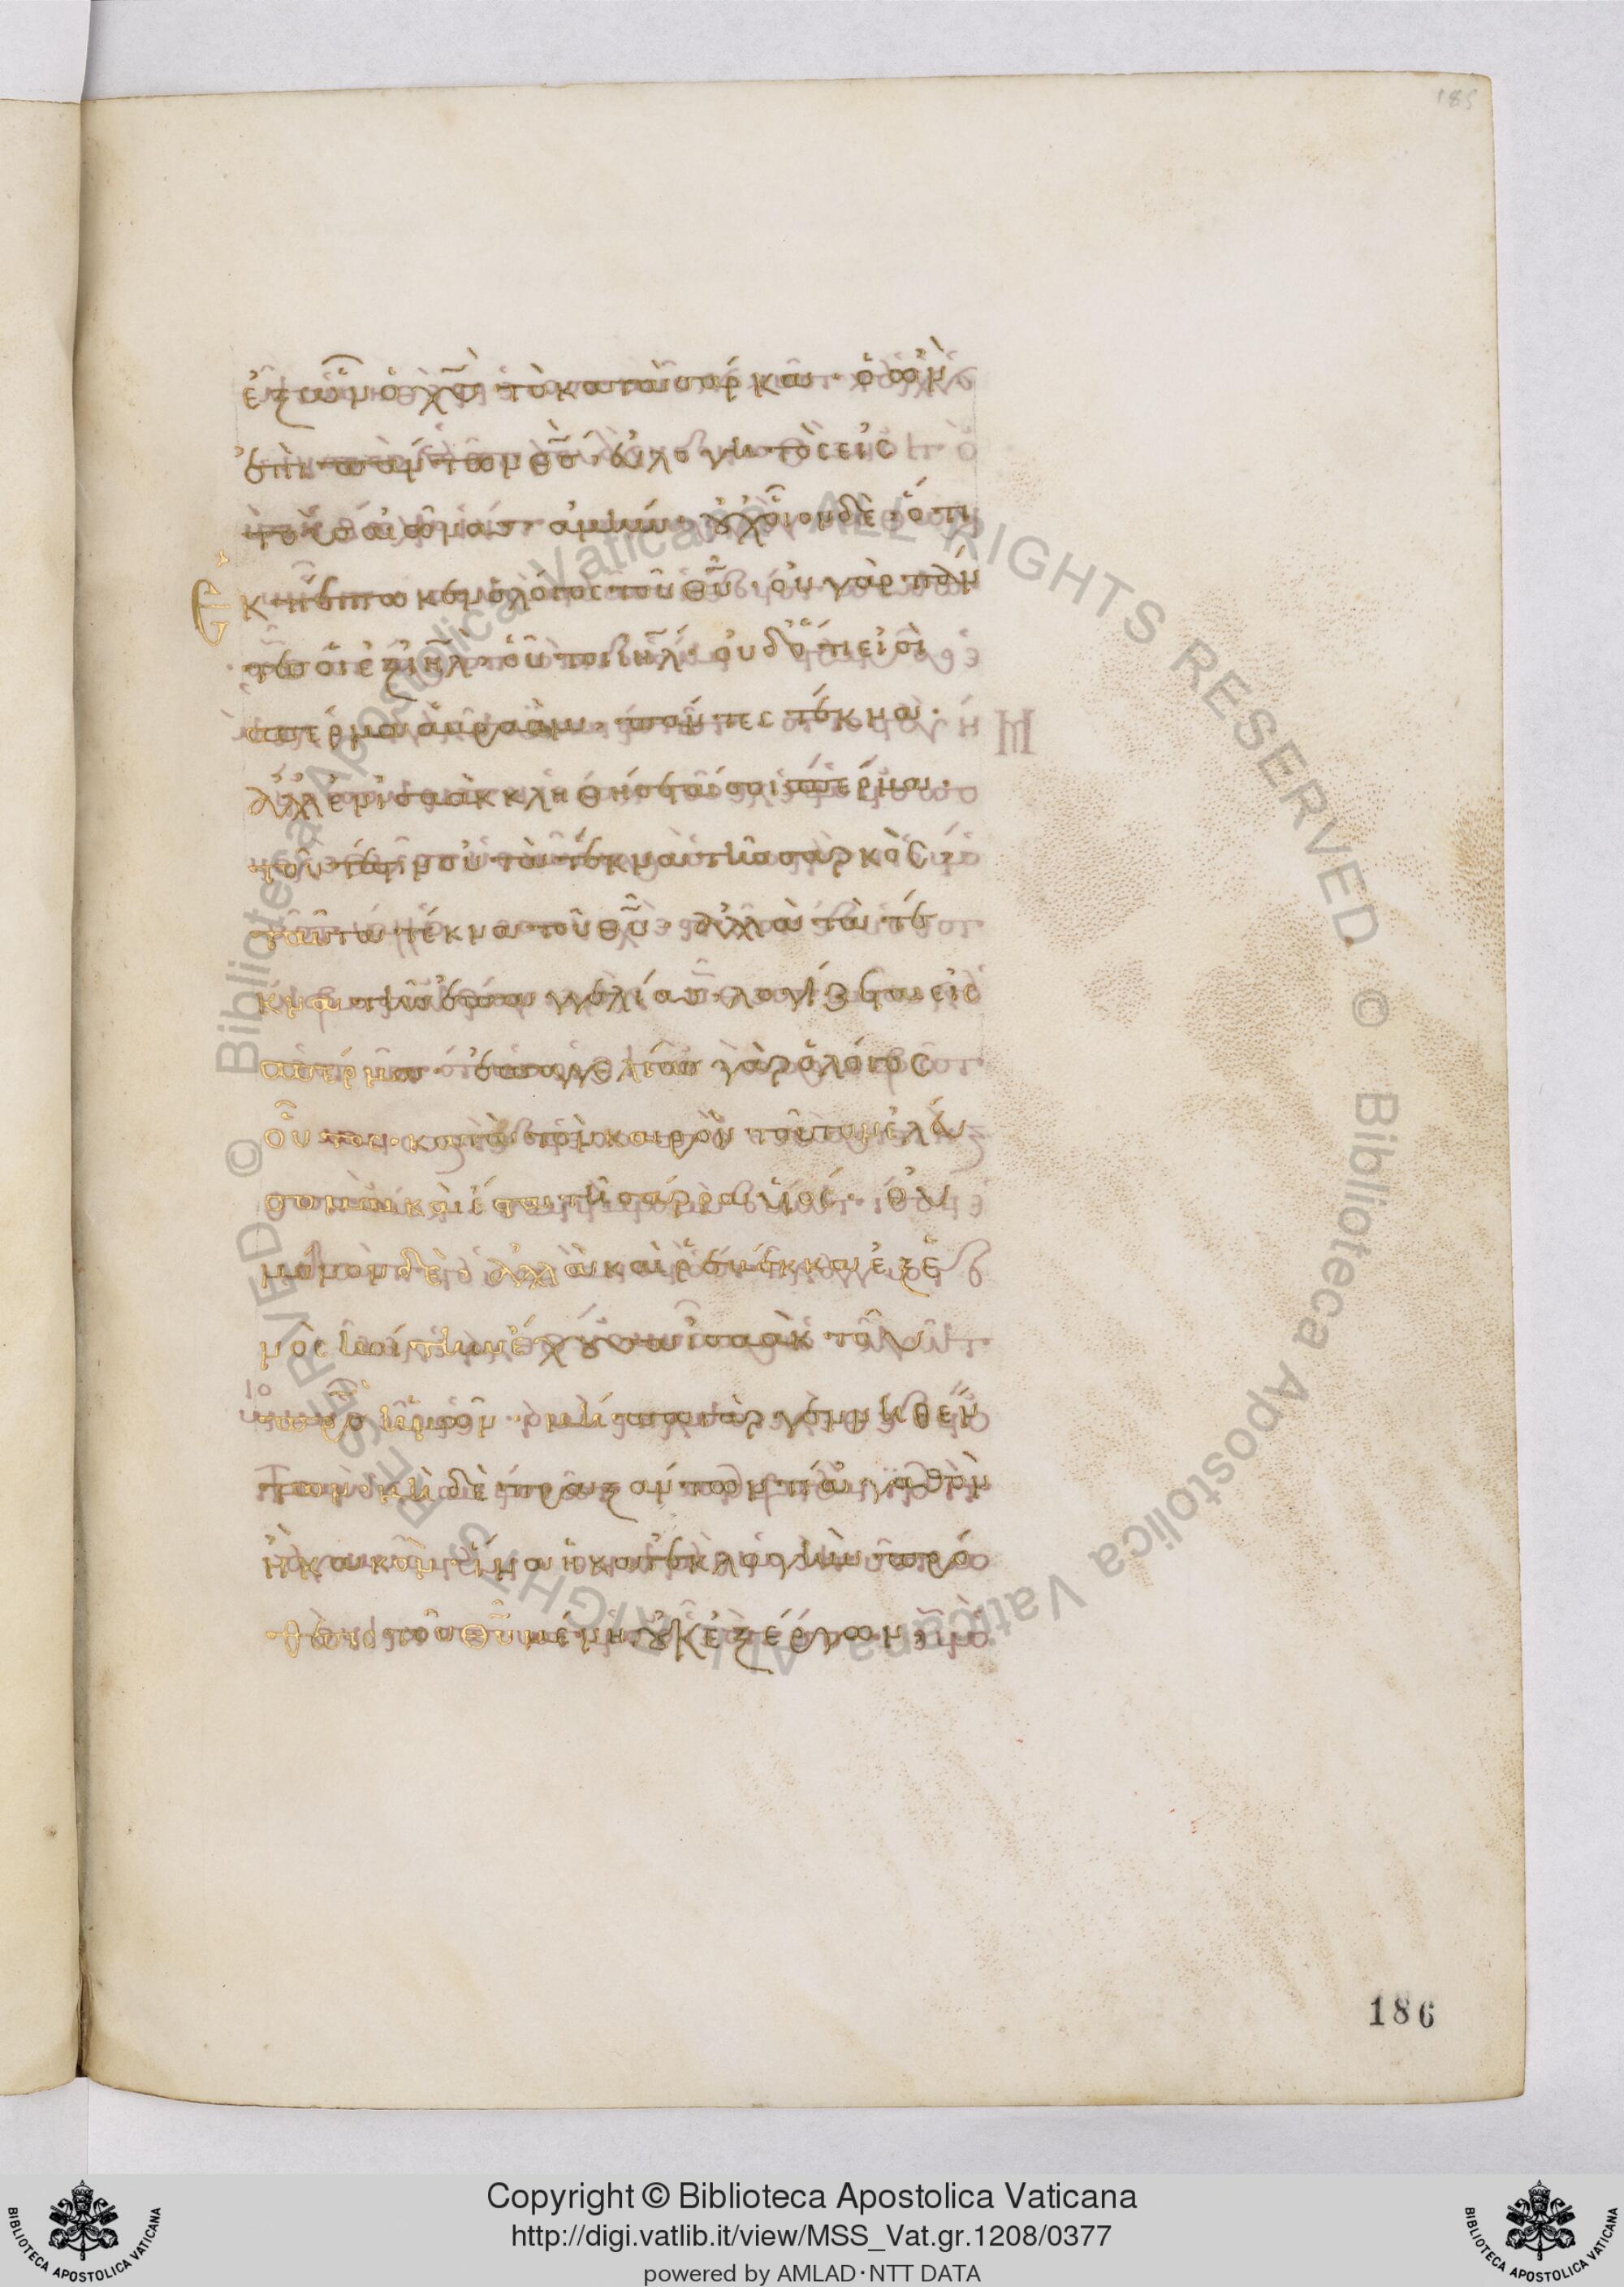 185
ἐξ ὧν ὁ χ̅ς̅ τὸ κατὰ σάρκα· ὁ ὢν
ἐπὶ πάντων θ̅ς̅ εὐλογητὸς εἰς
τοὺς αἰῶνας ἀμήν· οὐχ οἷον δὲ ὅτι
ἐκπέπτωκεν ὁ λόγος τοῦ θ̅υ̅· οὐ γὰρ πάν
τες οἱ ἐξ ι̅η̅λ̅ οὗτοι ι̅η̅λ̅· οὐδ' ὅτι εἰσὶ
σπέρμα ἀβραὰμ, πάντες τέκνα·
ἀλλ' ἐν ἰσαὰκ κληθήσεταί σοι σπέρμα·
τουτέστιν οὐ τὰ τέκνα τῆς σαρκὸς
ταῦτα τέκνα τοῦ θ̅υ̅· ἀλλὰ τὰ τέ
κνα τῆς ἐπαγγελίας λογίζεται εἰς
σπέρμα· ἐπαγγελίας γὰρ ὁ λόγος
οὗτος· κατὰ τὸν καιρὸν τοῦτον ἐλεύ
σομαι καὶ ἔσται τῇ σάρρα υἱός· οὐ
μόνον δὲ ἀλλὰ καὶ ῥεβέκκα ἐξ ἑ
νὸς κοίτην ἔχουσα ἰσαὰκ τοῦ
π̅ρ̅ς̅ ἡμῶν· μήπω γὰρ γεννηθέν
των μηδὲ πραξάντων τι ἀγαθὸν
ἢ κακὸν· ἵνα ἡ κατ' ἐκλογὴν πρό
θεσις τοῦ θ̅υ̅ μένῃ οὐκ ἐξ ἔργων,
186
© Biblioteca Apostolica Vaticana ALL RIGHTS RESERVED © Biblioteca Apostolica Vaticana ALL RIGHTS RESERVED
BIBLIOTECA APOSTOLICA VATICANA
Copyright © Biblioteca Apostolica Vaticana
http://digi.vatlib.it/view/MSS_Vat.gr.1208/0377
powered by AMLAD·NTT DATA
BIBLIOTECA APOSTOLICA VATICANA